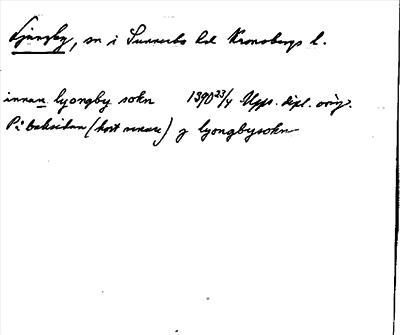 Ljungby, sn i Sunnerbo hd Kronobergs l.
innan lyongby sokn 1390 23/4 Upps. dipl. orig.
På baksidan (hört senare) j lyongbysokn